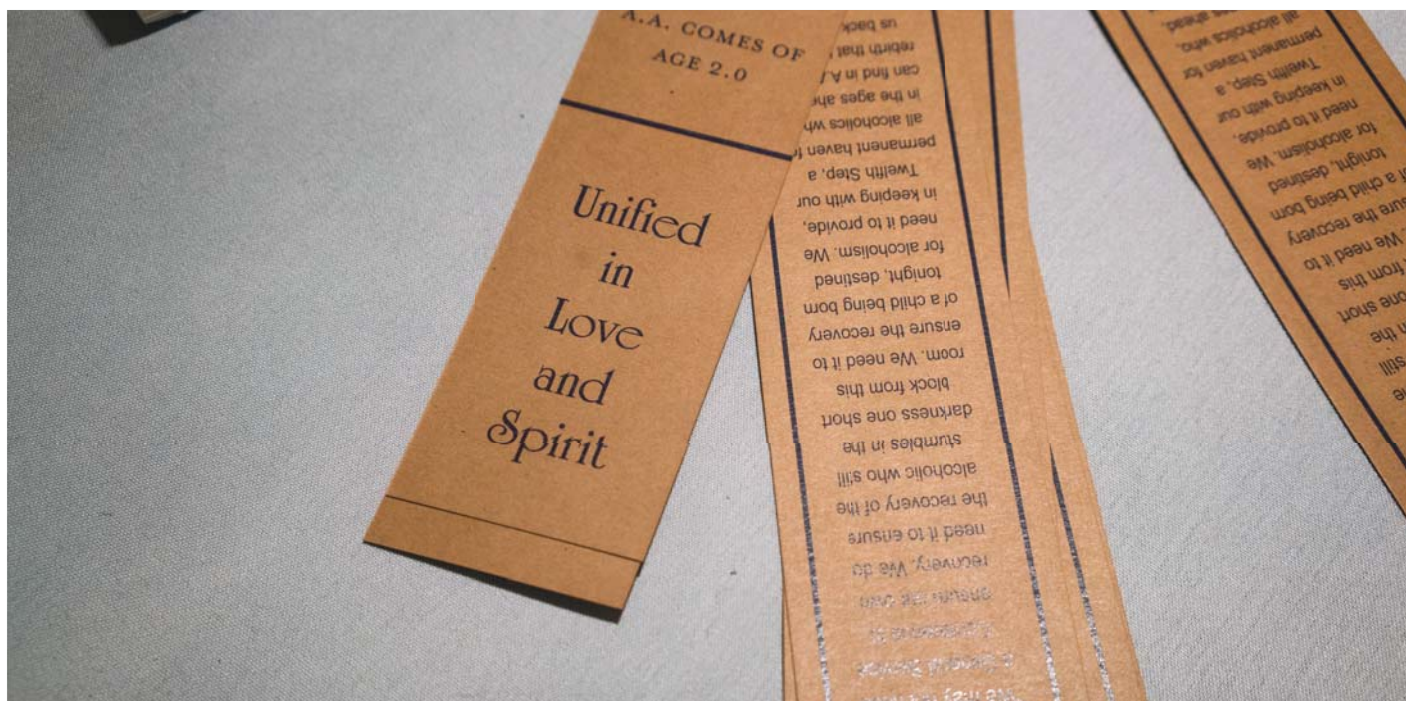 A.A. COMES OF
AGE 2.0
Unified
in
Love
and
Spirit
a General Service
ensure our own
recovery. We do
need it to ensure
the recovery of the
alcoholic who still
stumbles in the
darkness one short
block from this
room. We need it to
ensure the recovery
of a child being born
tonight, destined
for alcoholism. We
need it to provide,
in keeping with our
Twelfth Step, a
permanent haven
all alcoholics
in the ages
can find in
rebirth that
us back
still
the
one short
from this
We need it to
the recovery
of a child being born
tonight, destined
for alcoholism. We
need it to provide,
in keeping with our
Twelfth Step, a
permanent haven for
all alcoholics who,
ahead,